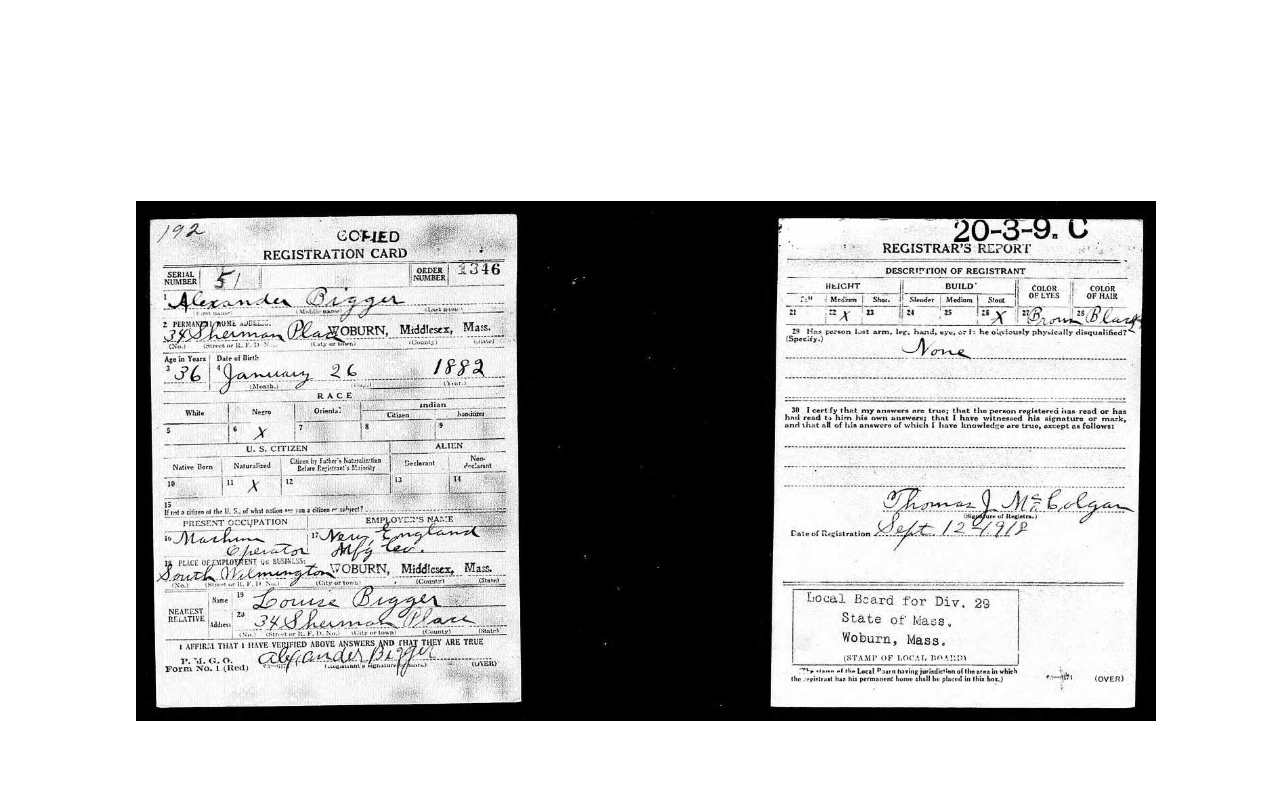 192
COPIED
REGISTRATION CARD
SERIAL NUMBER 51
ORDER NUMBER 1346
1 Alexander Bigger
(First name) (Middle name) (Last name)
2 PERMANENT HOME ADDRESS:
34 Sherman Place WOBURN, Middlesex, Mass.
(No.) (Street or R. F. D. No.) (City or town) (County) (State)
Age in Years Date of Birth
3 36 4 January 26 1882
(Month.) (Year.)
RACE
White Negro Oriental Indian
Citizen Noncitizen
5 6 X 7 8 9
U. S. CITIZEN ALIEN
Native Born Naturalized Citizen by Father's Naturalization Before Registrant's Majority Declarant Non-declarant
10 11 X 12 13 14
15
If not a citizen of the U. S., of what nation are you a citizen or subject?
PRESENT OCCUPATION EMPLOYER'S NAME
16 Mashin 17 New England
Operator Mfg Co.
18 PLACE OF EMPLOYMENT OR BUSINESS:
South Wilmington WOBURN, Middlesex, Mass.
(No.) (Street or R. F. D. No.) (City or town) (County) (State)
NEAREST RELATIVE Name 19 Louise Bigger
Address 20 34 Sherman Place
(No.) (Street or R. F. D. No.) (City or town) (County) (State)
I AFFIRM THAT I HAVE VERIFIED ABOVE ANSWERS AND THAT THEY ARE TRUE
P. M. G. O.
Form No. 1 (Red) Alexander Bigger
(Registrant's signature or mark) (OVER)
20-3-9. C
REGISTRAR'S REPORT
DESCRIPTION OF REGISTRANT
HEIGHT BUILD COLOR OF EYES COLOR OF HAIR
Tall Medium Short Slender Medium Stout
21 22 X 23 24 25 26 X 27 Brown 28 Black
29 Has person lost arm, leg, hand, eye, or is he obviously physically disqualified?
(Specify.)
None
30 I certify that my answers are true; that the person registered has read or has
had read to him his own answers; that I have witnessed his signature or mark,
and that all of his answers of which I have knowledge are true, except as follows:
Thomas J. McColgan
(Signature of Registrar.)
Date of Registration Sept. 12-1918
Local Board for Div. 29
State of Mass.
Woburn, Mass.
(STAMP OF LOCAL BOARD)
(The stamp of the Local Board having jurisdiction of the area in which
the registrant has his permanent home shall be placed in this box.)
(OVER)